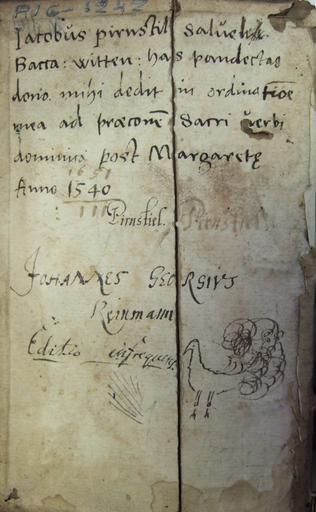 Iacobus pirnstil
Bacca: witten: has pandectas
dono mihi dedit in ordinatiõe
mea ad præconẽ sacri verbi
dominica post Margaretę
Anno 1540
1651
Pirnstiel. Pirnstiel
JOHANNES GEORGIUS
Reinmann
Editio infrequens